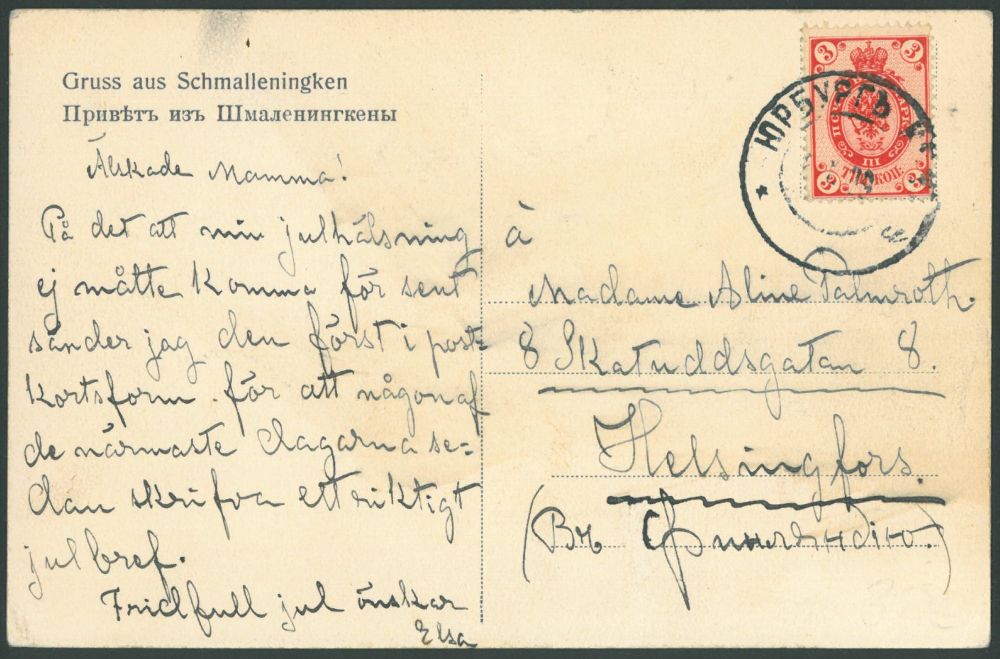 Gruss aus Schmalleningken
Привѣтъ изъ Шмаленингкены
Älskade Mamma!
På det att min julhälsning
ej måtte komma för sent
sänder jag den först i post=
kortsform för att någon af
de närmaste dagarna se=
dan skrifva ett riktigt
julbref.
Fridfull jul önskar
Elsa
à
Madame Aline Palmroth.
8 Skatuddsgatan 8.
Helsingfors.
(Въ Финляндію.)
3 3
ПОЧТ МАРКА
III
ТРИ КОП.
3 3
* ЮРБУРГЪ